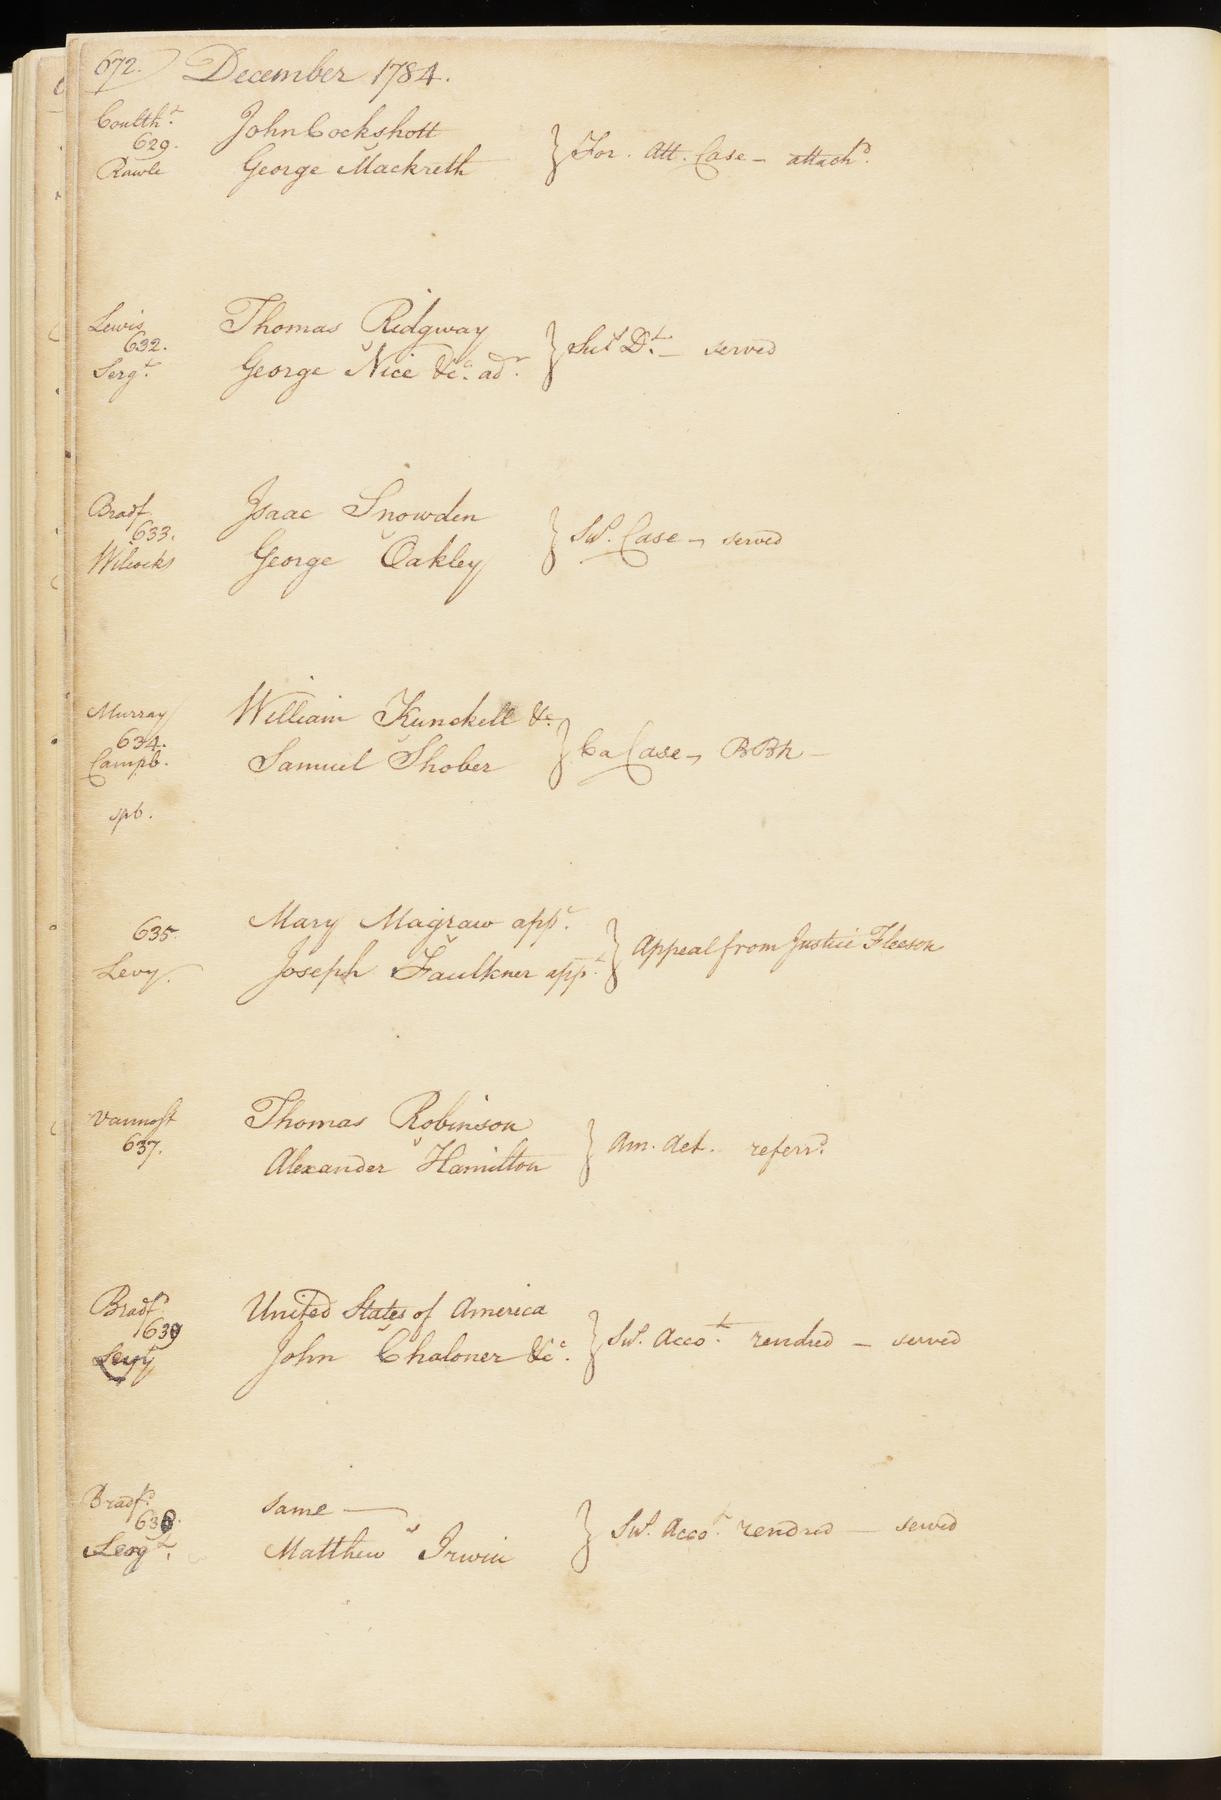 672. December 1784.
Coulth.t John Cockshott
629. } For. Att. Case — attach.d
Rawle George Mackreth
Lewis Thomas Ridgway
632. } Sus D.t — served
Serg.t George Nice &c. ad.r
Bradf. Isaac Snowden
633. } Sus. Case — served
Wilcocks George Oakley
Murray William Kunckell &c
634. } Ca Case — BBh —
Campb. Samuel Shober
spb.
Mary Magraw app.t
635. } Appeal from Justice Fleeson
Levy. Joseph Faulkner app.t
Vannost Thomas Robinson
637. } Am. Act. referr.d
Alexander Hamilton
Bradf.d United States of America
639 } Sus. Acco.t rendred — served
Levy John Chaloner &c.
Bradf.d same —
638. } Sus. Acco.t rendred — served
Serg.t Matthew Irwin